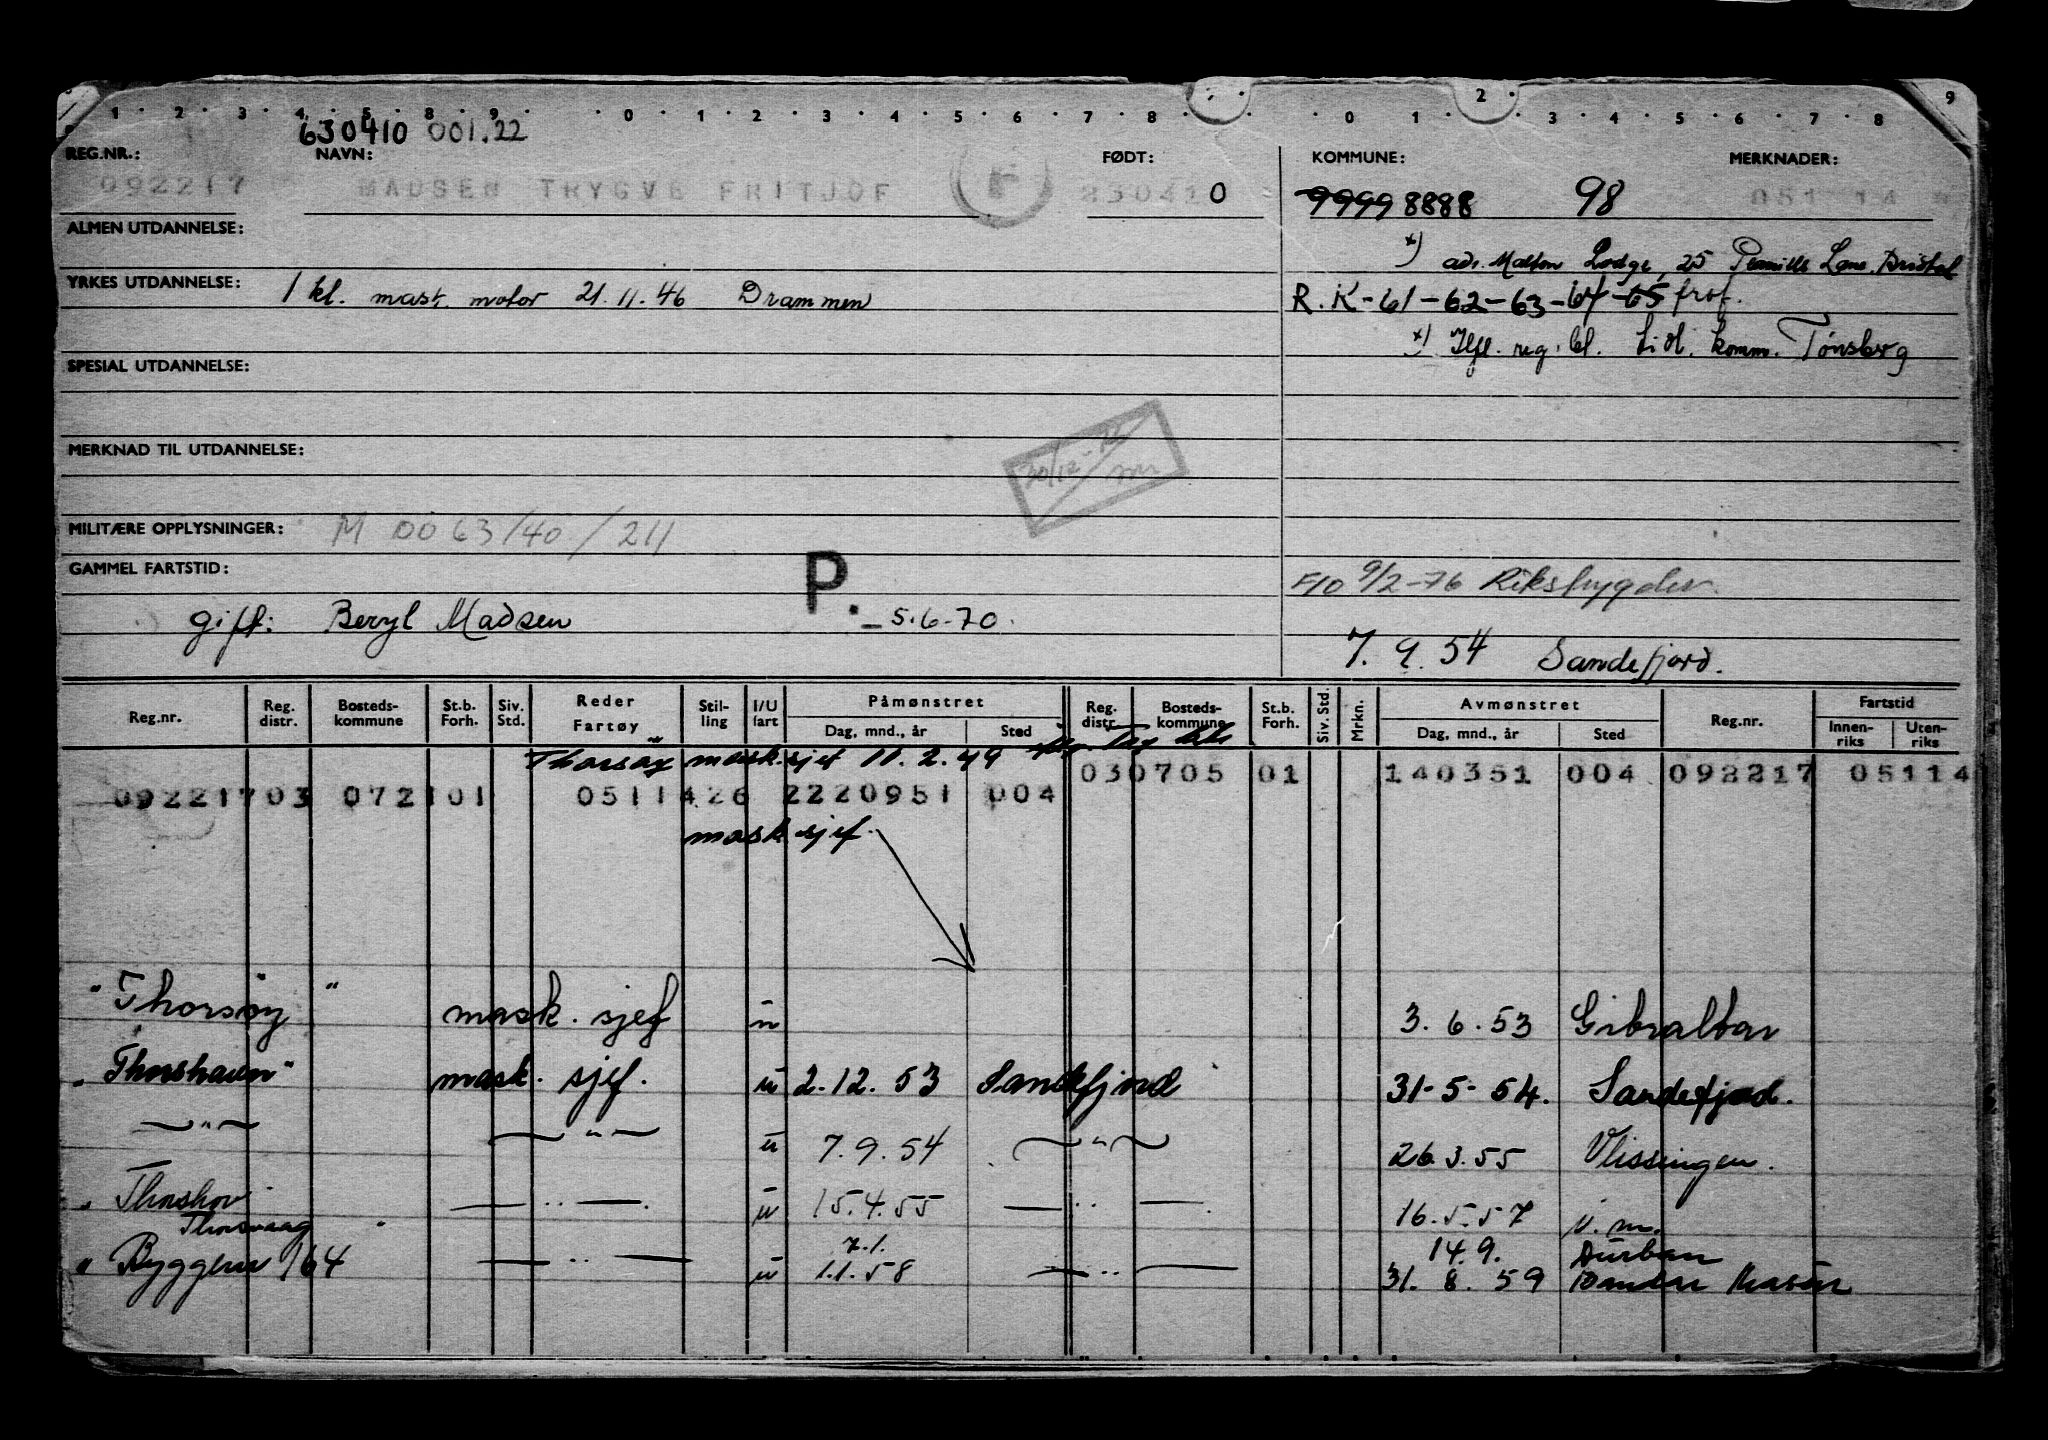 1 · 2 · 3 · 4 · 5 · 8 · 9 · · 0 · 1 · 2 · 3 · 4 · 5 · 6 · 7 · 8 · · 0 · 1 · 2 · 3 · 4 · 5 · 6 · 7 · 8 9
630410 001.22
REG.NR.: NAVN: FØDT: KOMMUNE: MERKNADER:
092217 MADSEN TRYGVE FRITJOF F 230410 9999 8888 98 051114
ALMEN UTDANNELSE:
x) adr. Malton Lodge, 25 Lane. Bristol
YRKES UTDANNELSE: 1 kl. mask. motor 21.11.46 Drammen
R.K-61-62-63-64-65 frof.
x) Ifl. reg. bl. tidl. komm. Tønsberg
SPESIAL UTDANNELSE:
MERKNAD TIL UTDANNELSE:
MILITÆRE OPPLYSNINGER: M 0063/40/211
GAMMEL FARTSTID:
P. - 5.6-70.
F10 9/2-76 Riksbygder.
gift: Beryl Madsen
7.9.54 Sandefjord.
Reg.nr. Reg. distr. Bosteds-kommune St.b. Forh. Siv. Std. Reder Fartøy Stil-ling I/U fart Påmønstret Dag, mnd., år Sted Reg. distr. Bosteds-kommune St.b. Forh. Siv. Std. Mrkn. Avmønstret Dag, mnd., år Sted Reg.nr. Fartstid Innen-riks Uten-riks
Thorsøy mask.sjef 11.2.49
030705 01 140351 004 092217 05114
09221703 072101 0511426 2220951 004
mask sjef.
"Thorsøy" mask. sjef u 3.6.53 Gibraltar
"Thorshavn" mask. sjef. u 2.12.53 Sandefjord 31-5-54. Sandefjord.
— " — — " — u 7.9.54 — " — 26.3.55 Vlissingen.
" Thorshov — " — u 15.4.55 — " — 16.5.57 v.m.
Thorsvaag " 7.1. 14.9. Durban
" Byggenr 164 — " — u 1.1.58 — " — 31.8.59 Bandar